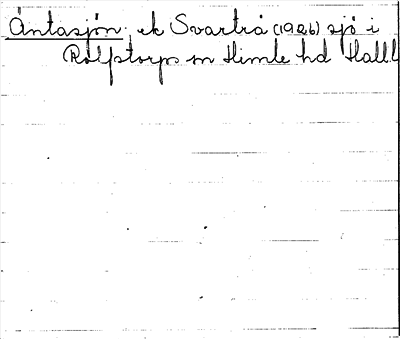 Äntasjön, ek Svartrå (1926) sjö i
Rolfstorps sn Himle hd Halll